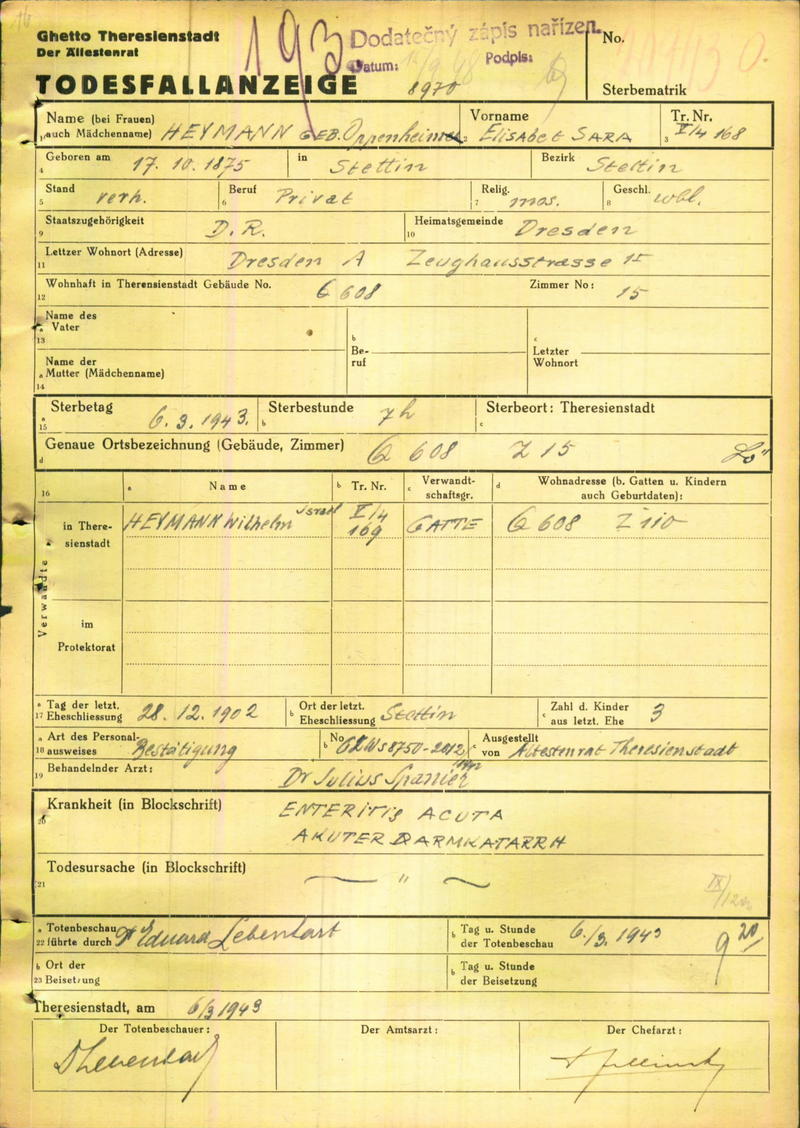 Ghetto Theresienstadt
Der Ältestenrat
TODESFALLANZEIGE
193
Dodatečný zápis nařízen.
Datum:
Podpis:
8970
No.
Sterbematrik
Name (bei Frauen) auch Mädchenname) HEYMANN GEB. Oppenheimer
1
2 Vorname Elisabet SARA
3 Tr. Nr. V/4 168
4 Geboren am 17. 10. 1875 in Stettin Bezirk Stettin
5 Stand verh. 6 Beruf Privat 7 Relig. mos. 8 Geschl. wbl.
9 Staatszugehörigkeit D. R. 10 Heimatsgemeinde Dresden
11 Lettzer Wohnort (Adresse) Dresden A Zeughausstrasse
12 Wohnhaft in Therensienstadt Gebäude No. Q 608 Zimmer No: 15
13 a Name des Vater
b Be-ruf
c Letzter Wohnort
14 a Name der Mutter (Mädchenname)
15 a Sterbetag 6. 3. 1943. b Sterbestunde 7 h c Sterbeort: Theresienstadt
d Genaue Ortsbezeichnung (Gebäude, Zimmer) Q 608 Z 15
16 a Name b Tr. Nr. c Verwandt-schaftsgr. d Wohnadresse (b. Gatten u. Kindern auch Geburtdaten):
Verwandte
in There-sienstadt HEYMANN Wilhelm Israel V/4 169 GATTE Q 608 Z 110
im Protektorat
17 a Tag der letzt. Eheschliessung 28. 12. 1902 b Ort der letzt. Eheschliessung Stettin c Zahl d. Kinder aus letzt. Ehe 3
18 a Art des Personal-ausweises Bestätigung b No c Ausgestellt von Ältestenrat Theresienstadt
19 Behandelnder Arzt: Dr Julius Spanier
20 Krankheit (in Blockschrift) ENTERITIS ACUTA
AKUTER DARMKATARRH
21 Todesursache (in Blockschrift) — " —
22 a Totenbeschau führte durch Dr Eduard Lebenhart b Tag u. Stunde der Totenbeschau 6./3. 1943 9 20
23 b Ort der Beisetzung b Tag u. Stunde der Beisetzung
Theresienstadt, am 6/3 1943
Der Totenbeschauer: Der Amtsarzt: Der Chefarzt: